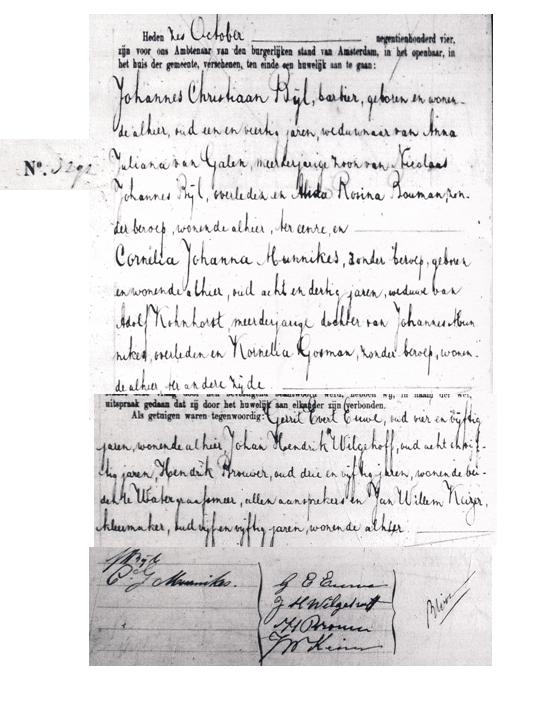 Heden zes October negentienhonderd vier,
zijn voor ons Ambtenaar van den burgerlijken stand van Amsterdam, in het openbaar, in
het huis der gemeente, verschenen, ten einde een huwelijk aan te gaan:
Johannes Christiaan Bijl, barbier, geboren en wonen-
de alhier, oud een en veertig jaren, weduwnaar van Anna
Juliana van Galen, meerderjarige zoon van Nicolaas
No. 3292
Johannes Bijl, overleden en Alida Rosina Bouman, zon-
der beroep, wonende alhier, ter eenre, en
Cornelia Johanna Munnikes, zonder beroep, geboren
en wonende alhier, oud acht en dertig jaren, weduwe van
Adolf Kohnhorst, meerderjarige dochter van Johannes Mun
nikes, overleden en Kornelia Gosman, zonder beroep, wonen-
de alhier, ter andere zijde
uitspraak gedaan dat zij door het huwelijk aan elkander zijn verbonden.
Als getuigen waren tegenwoordig: Gerrit Evert Euwe, oud vier en vijftig
jaren, wonende alhier, Johan Hendrik Wilgehoff, oud acht en vijf-
tig jaren, Hendrik Brouwer, oud drie en vijftig jaren, wonende bei-
den te Watergraafsmeer, allen aansprekers en Jan Willem Keizer,
kleermaker, oud vijf en vijftig jaren, wonende alhier.
Bijl
C. J. Munnikes.
G E Euwe
J H Wilgehoff
H Brouwer
J W